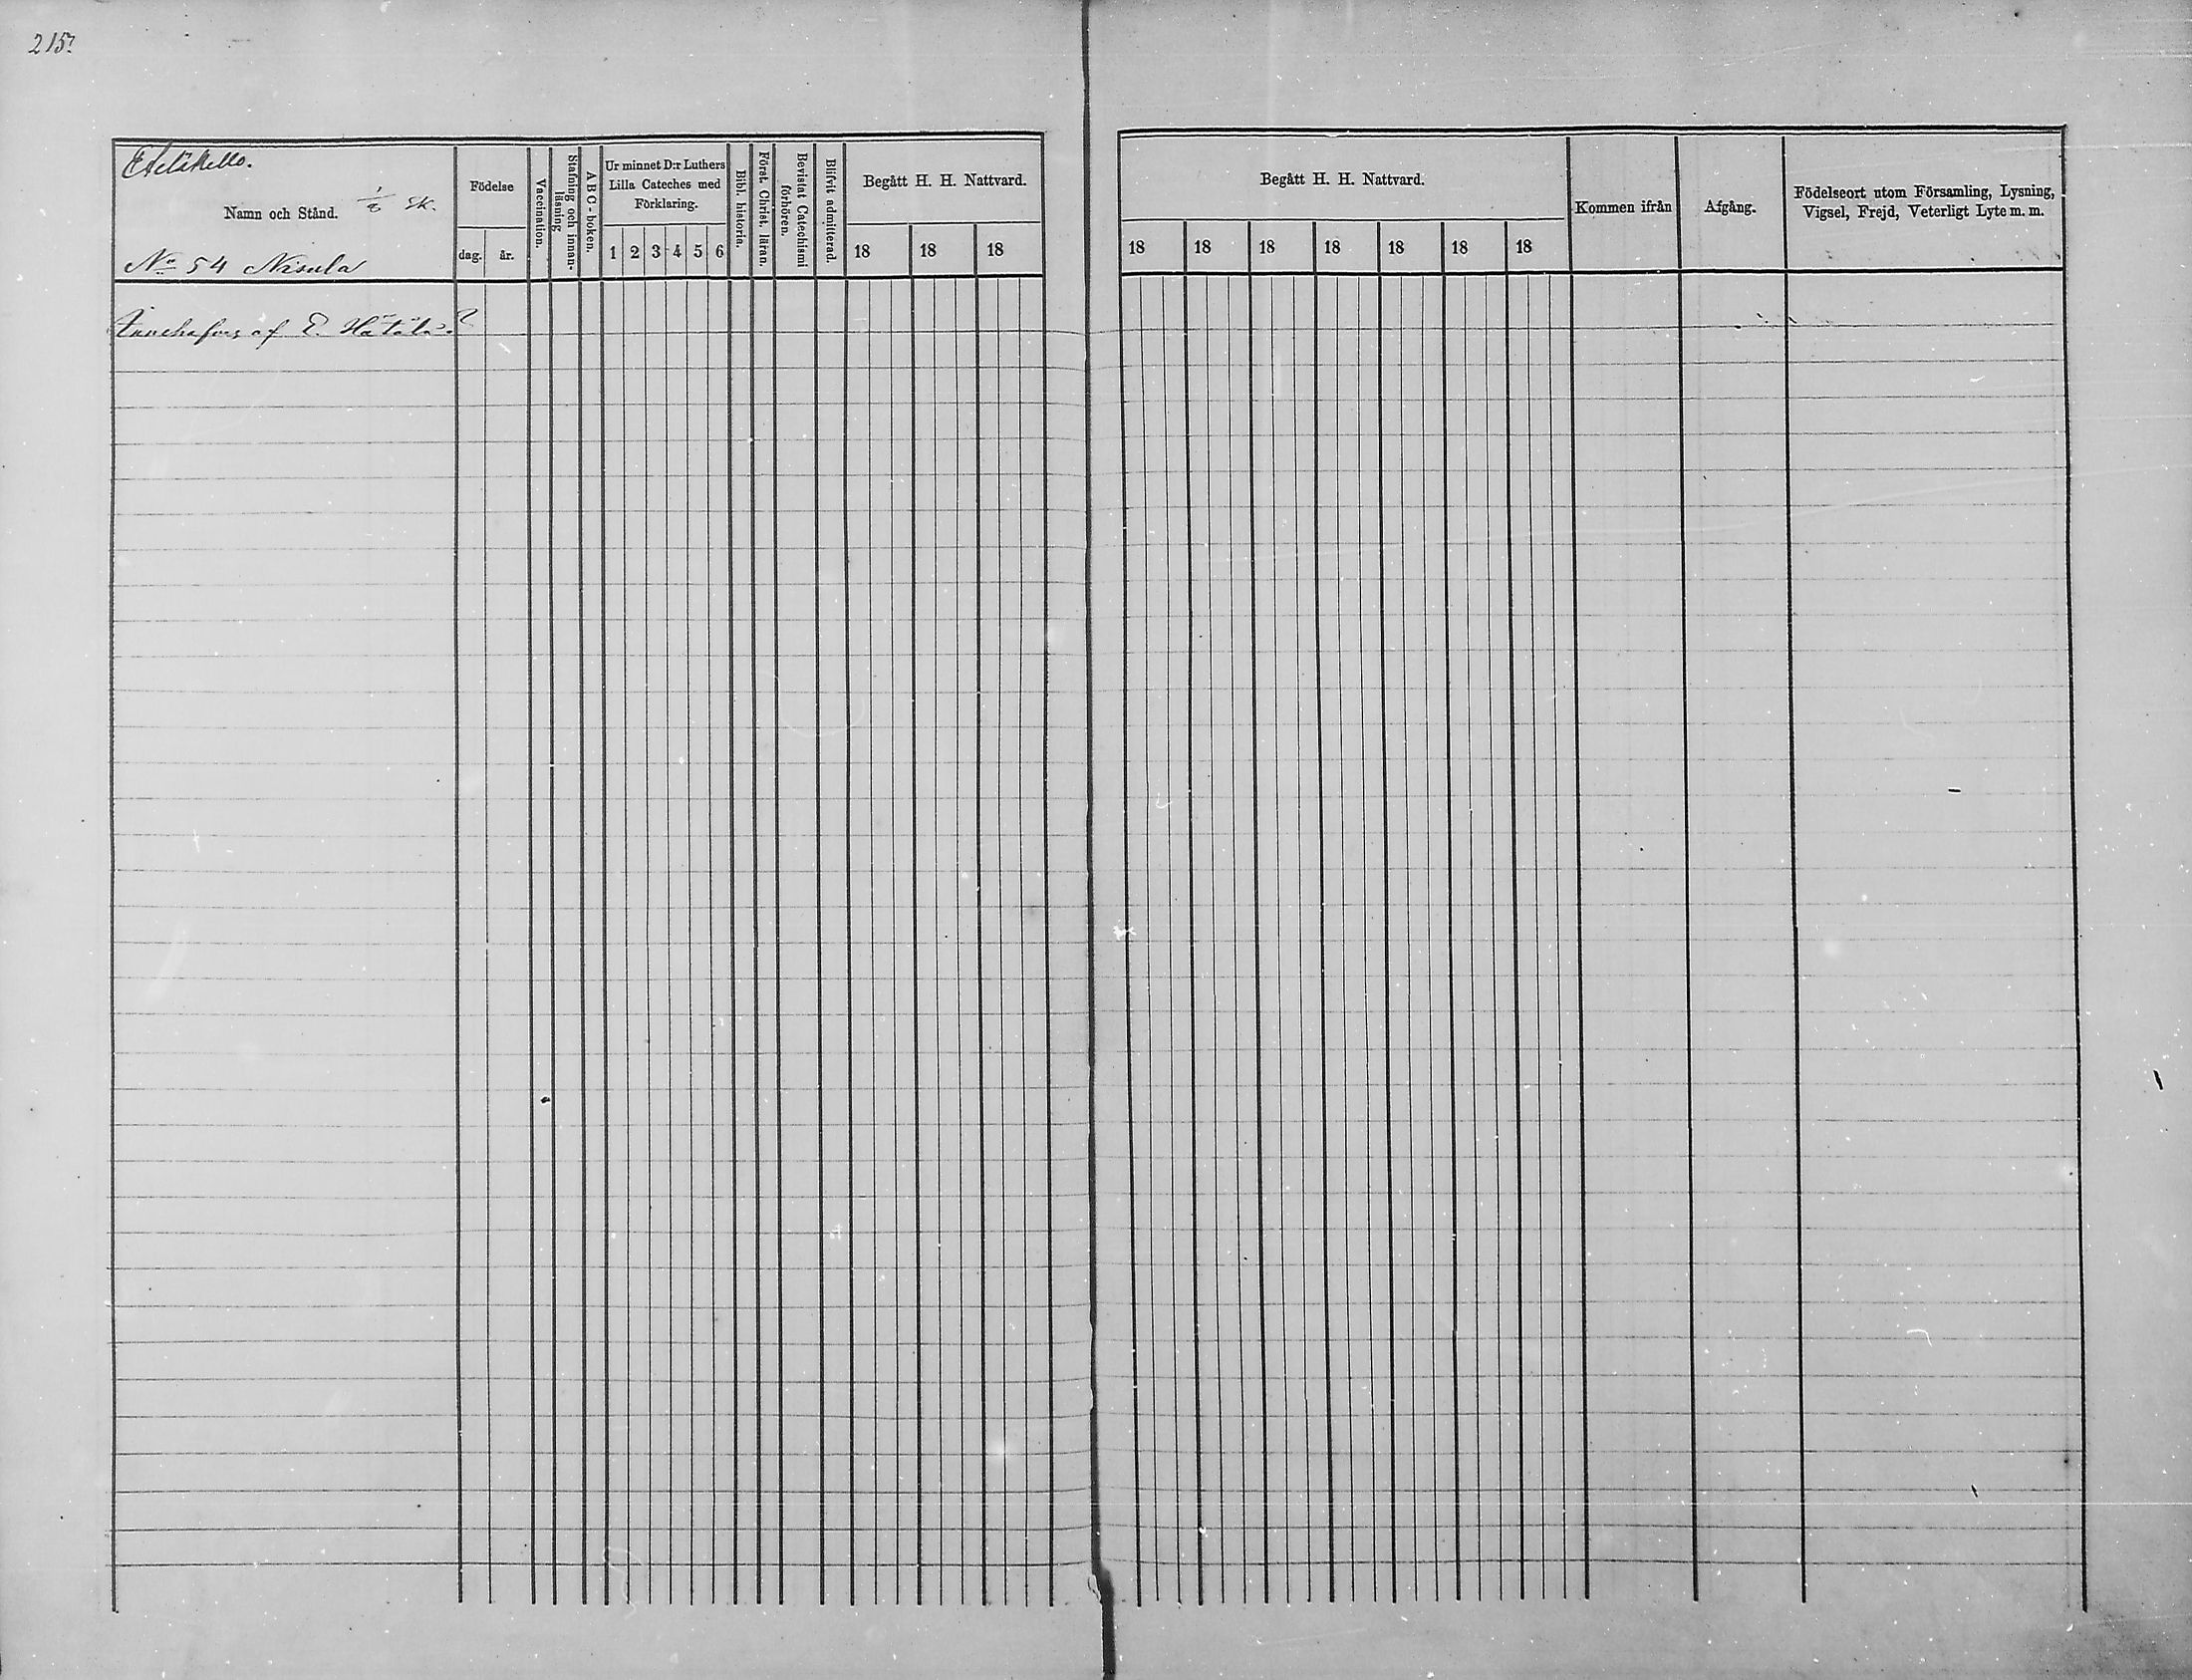 215?
Eteläkello.
Namn och Stånd. 1/8 sk.
No 54 Nisula
Födelse
dag. år.
Vaccination.
Stafning och innan-
läsning
A B C - boken.
Ur minnet D:r Luthers
Lilla Cateches med
Förklaring.
1 2 3 4 5 6
Bibl. historia.
Först. Christ. läran.
Bevistat Catechismi
förhören.
Blifvit admitterad.
Begått H. H. Nattvard.
18 18 18
Begått H. H. Nattvard.
18 18 18 18 18 18 18
Kommen ifrån
Afgång.
Födelseort utom Församling, Lysning,
Vigsel, Frejd, Veterligt Lyte m. m.
Innehafves af E. Hätälä.?